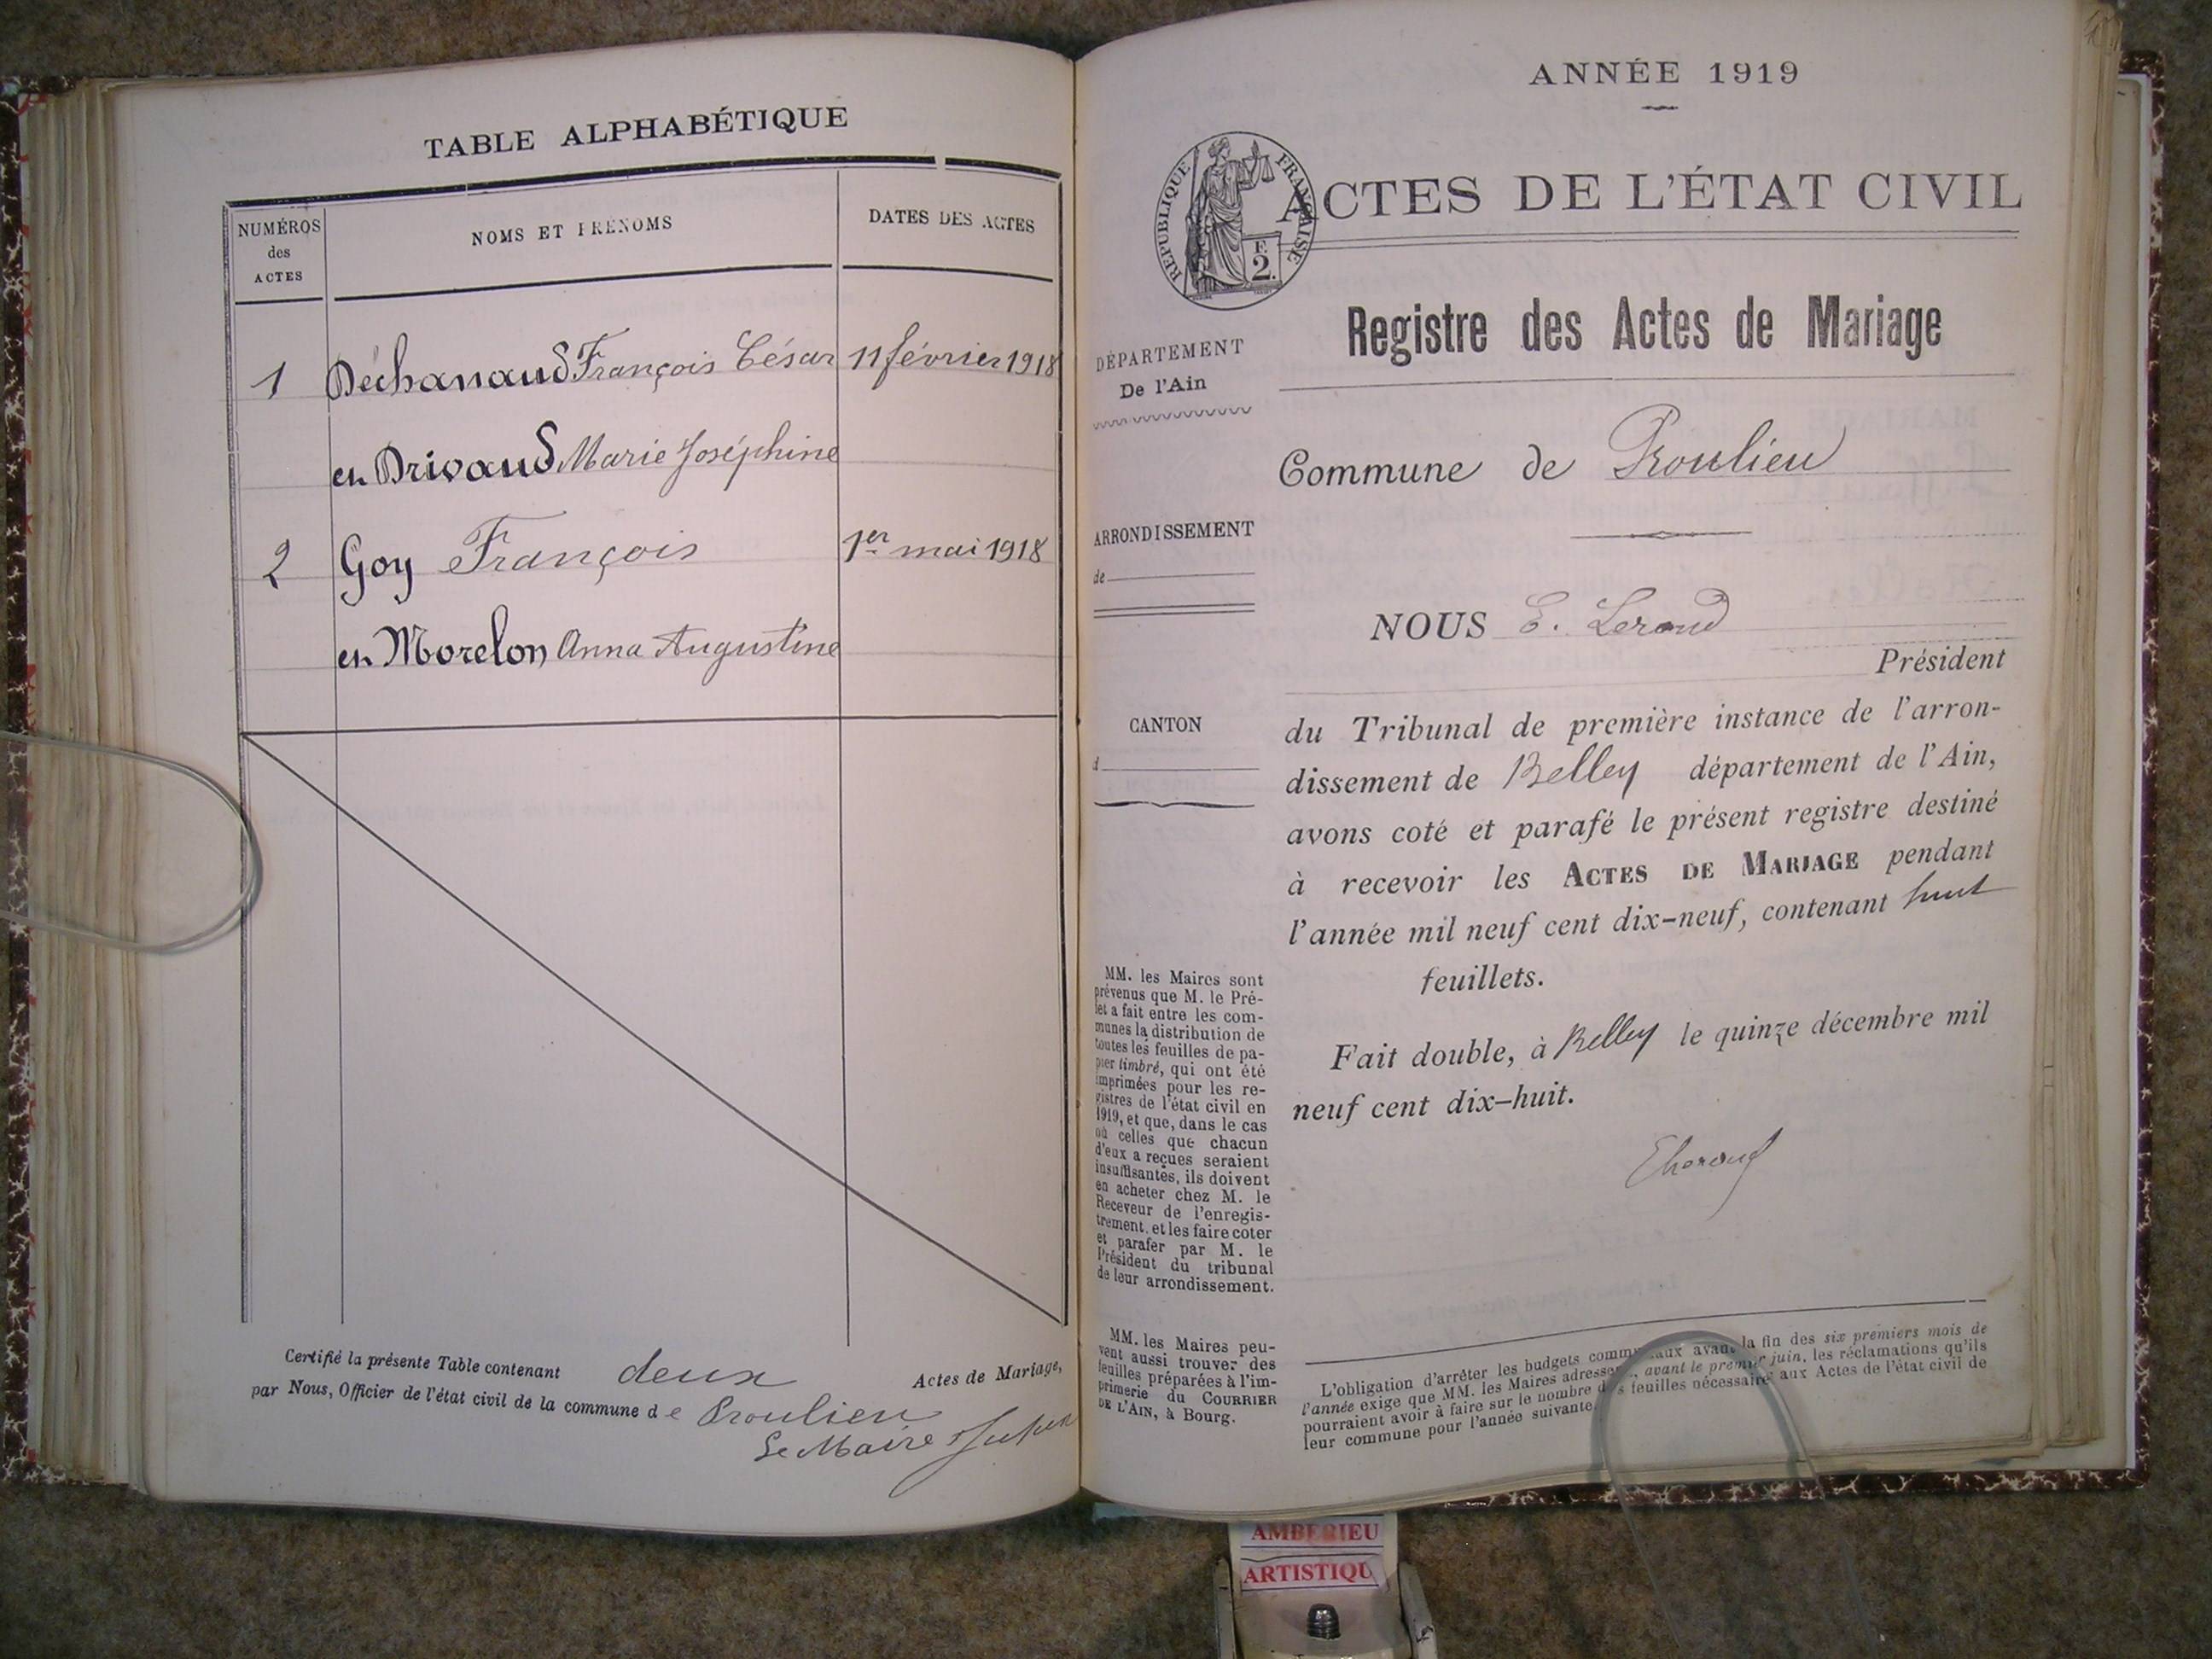 TABLE ALPHABÉTIQUE
NUMÉROS
des
ACTES
NOMS ET PRÉNOMS
DATES DES ACTES
1 Déchanaud François César 11 février 1918
et Drivaud Marie Joséphine
2 Goy François 1er mai 1918
et Morelon Anna Augustine
Certifié la présente Table contenant deux Actes de Mariage,
par Nous, Officier de l'état civil de la commune de Proulieu
Le Maire
ANNÉE 1919
RÉPUBLIQUE FRANÇAISE
F.
2.
ACTES DE L'ÉTAT CIVIL
Registre des Actes de Mariage
DÉPARTEMENT
De l'Ain
Commune de Proulieu
ARRONDISSEMENT
de
NOUS E. Leroud
Président
CANTON
d
du Tribunal de première instance de l'arron-
dissement de Belley département de l'Ain,
avons coté et parafé le présent registre destiné
à recevoir les ACTES DE MARIAGE pendant
l'année mil neuf cent dix-neuf, contenant huit
feuillets.
Fait double, à Belley le quinze décembre mil
neuf cent dix-huit.
MM. les Maires sont
prévenus que M. le Pré-
fet a fait entre les com-
munes la distribution de
toutes les feuilles de pa-
pier timbré, qui ont été
imprimées pour les re-
gistres de l'état civil en
1919, et que, dans le cas
où celles que chacun
d'eux a reçues seraient
insuffisantes, ils doivent
en acheter chez M. le
Receveur de l'enregis-
trement, et les faire coter
et parafer par M. le
Président du tribunal
de leur arrondissement.
MM. les Maires peu-
vent aussi trouver des
feuilles préparées à l'im-
primerie du COURRIER
DE L'AIN, à Bourg.
L'obligation d'arrêter les budgets communaux avant la fin des six premiers mois de
l'année exige que MM. les Maires adressent, avant le premier juin, les réclamations qu'ils
pourraient avoir à faire sur le nombre des feuilles nécessaires aux Actes de l'état civil de
leur commune pour l'année suivante.
AMBERIEU
ARTISTIQU